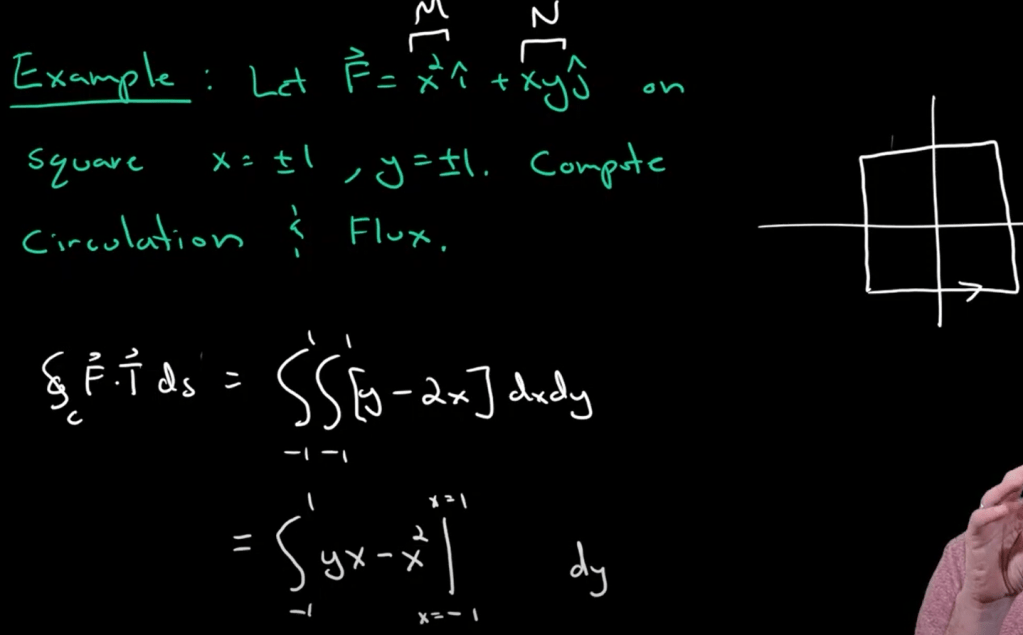 M N
Example : Let F⃗ = x² î + xy ĵ on
square x = ±1 , y = ±1. Compute
Circulation & Flux.
∮_C F⃗ · T⃗ ds = ∫_{-1}^{1} ∫_{-1}^{1} [y - 2x] dxdy
= ∫_{-1}^{1} yx - x² |_{x=-1}^{x=1} dy